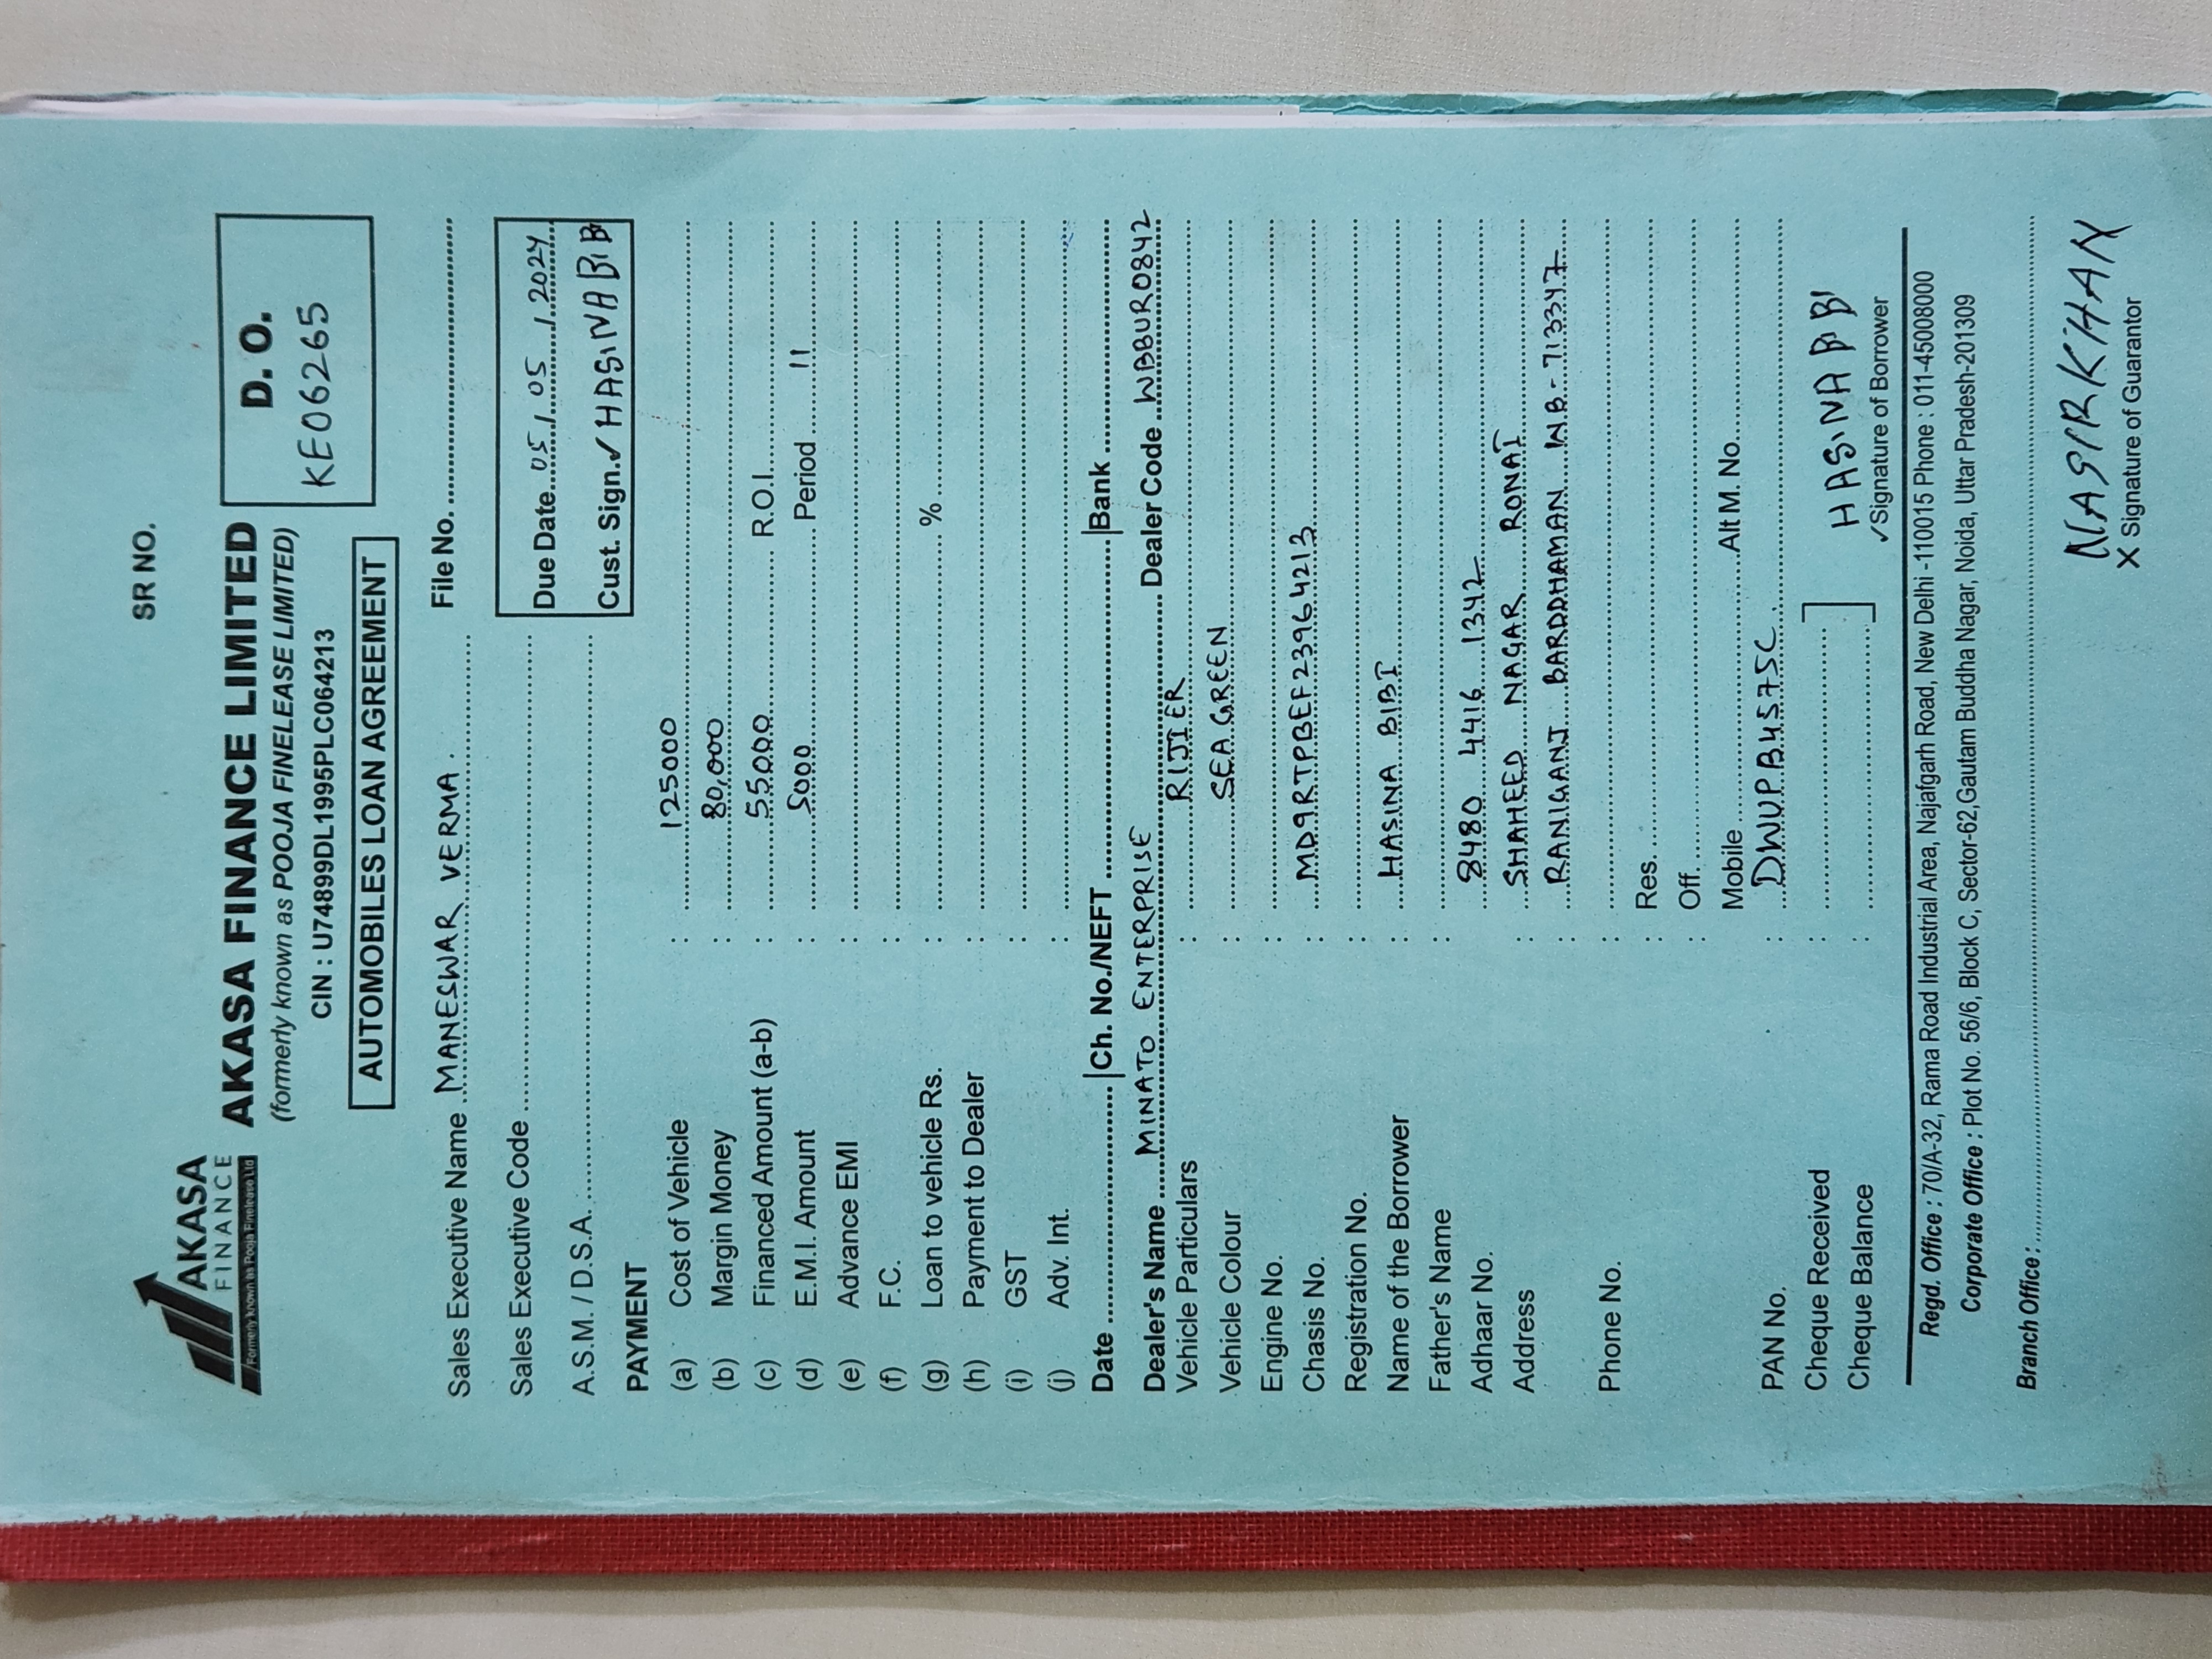 SR NO.
AKASA
FINANCE
Formerly known as Pooja Finelease Ltd
AKASA FINANCE LIMITED
(formerly known as POOJA FINELEASE LIMITED)
CIN : U74899DL1995PLC064213
AUTOMOBILES LOAN AGREEMENT
D. O.
KE06265
Sales Executive Name MANESWAR VERMA.
File No.
Sales Executive Code
Due Date 05/05/2024
A.S.M. / D.S.A.
Cust. Sign.✓ HASINA BIBI
PAYMENT
(a) Cost of Vehicle : 125000
(b) Margin Money : 80,000
(c) Financed Amount (a-b) : 55000 R.O.I.
(d) E.M.I. Amount : 5000 Period 11
(e) Advance EMI :
(f) F.C. :
(g) Loan to vehicle Rs. : %
(h) Payment to Dealer :
(i) GST :
(j) Adv. Int. :
Date |Ch. No./NEFT |Bank
Dealer's Name MINATO ENTERPRISE Dealer Code WBBUR0842
Vehicle Particulars : RIJIER
Vehicle Colour : SEA GREEN
Engine No. :
Chasis No. : MD9RTPBEF23964213
Registration No. :
Name of the Borrower : HASINA BIBI
Father's Name :
Adhaar No. 8480 4416 1342
Address : SHAHEED NAGAR RONAI
: RANIGANJ BARDDHAMAN W.B - 713347
Phone No. :
: Res.
: Off.
Mobile Alt M. No.
PAN No. : DWUPB4575C.
Cheque Received :
Cheque Balance :
HASINA BIBI
✓Signature of Borrower
Regd. Office : 70/A-32, Rama Road Industrial Area, Najafgarh Road, New Delhi -110015 Phone : 011-45008000
Corporate Office : Plot No. 56/6, Block C, Sector-62,Gautam Buddha Nagar, Noida, Uttar Pradesh-201309
Branch Office :
NASIR KHAN
X Signature of Guarantor